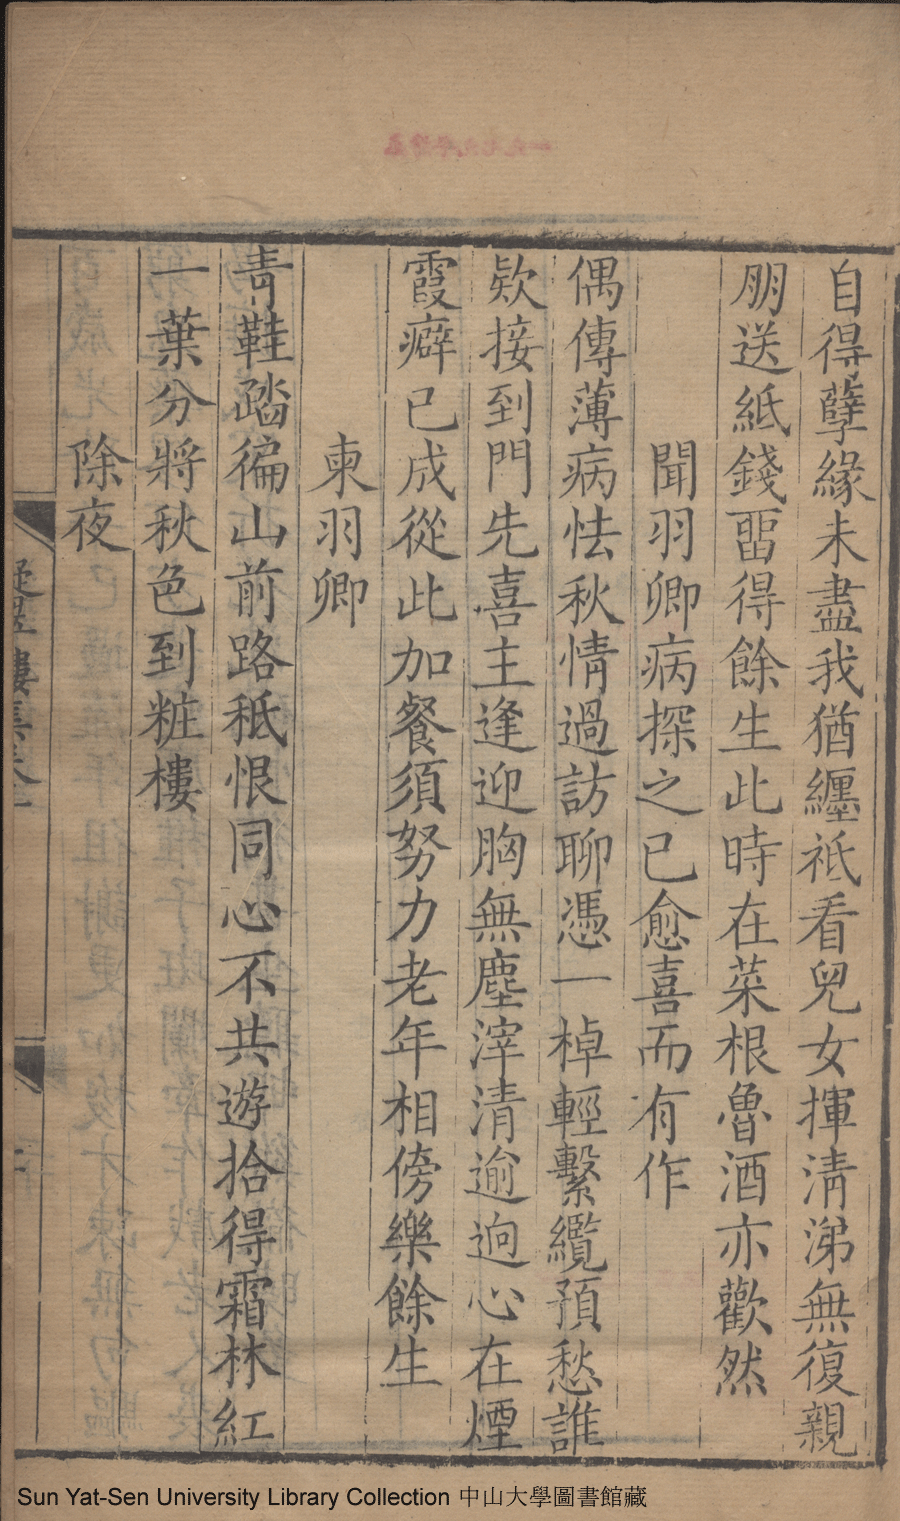 自得孽緣未盡我猶纏祗看兒女揮清涕無復親
朋送紙錢畱得餘生此時在菜根魯酒亦歡然
聞羽卿病探之已愈喜而有作
偶傳薄病怯秋情過訪聊憑一棹輕繫纜預愁誰
欵接到門先喜主逢迎胸無塵滓清逾逈心在煙
霞癖已成從此加餐須努力老年相傍樂餘生
柬羽卿
青鞋踏徧山前路秖恨同心不共遊拾得霜林紅
一葉分將秋色到粧樓
除夜
Sun Yat-Sen University Library Collection 中山大學圖書館藏